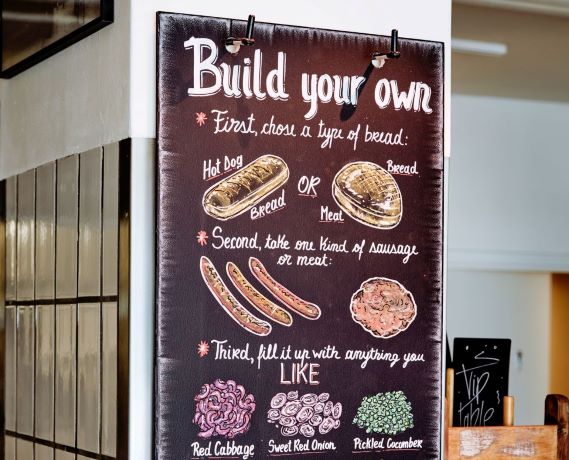 Build your own
* First, chose a type of bread:
Hot Dog
Bread
OR
Bread
Meat
* Second, take one kind of sausage
or meat:
* Third, fill it up with anything you
LIKE
Red Cabbage
Sweet Red Onion
Pickled Cocomber
S
Vip
table